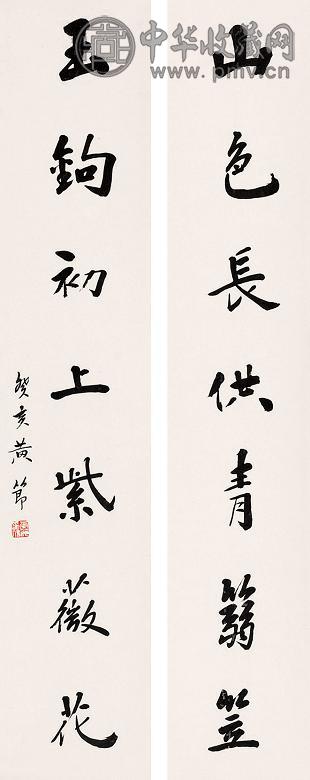 山色長供青篛笠
玉鈎初上紫薇花
癸亥黃節
中华收藏网
www.pmv.cn